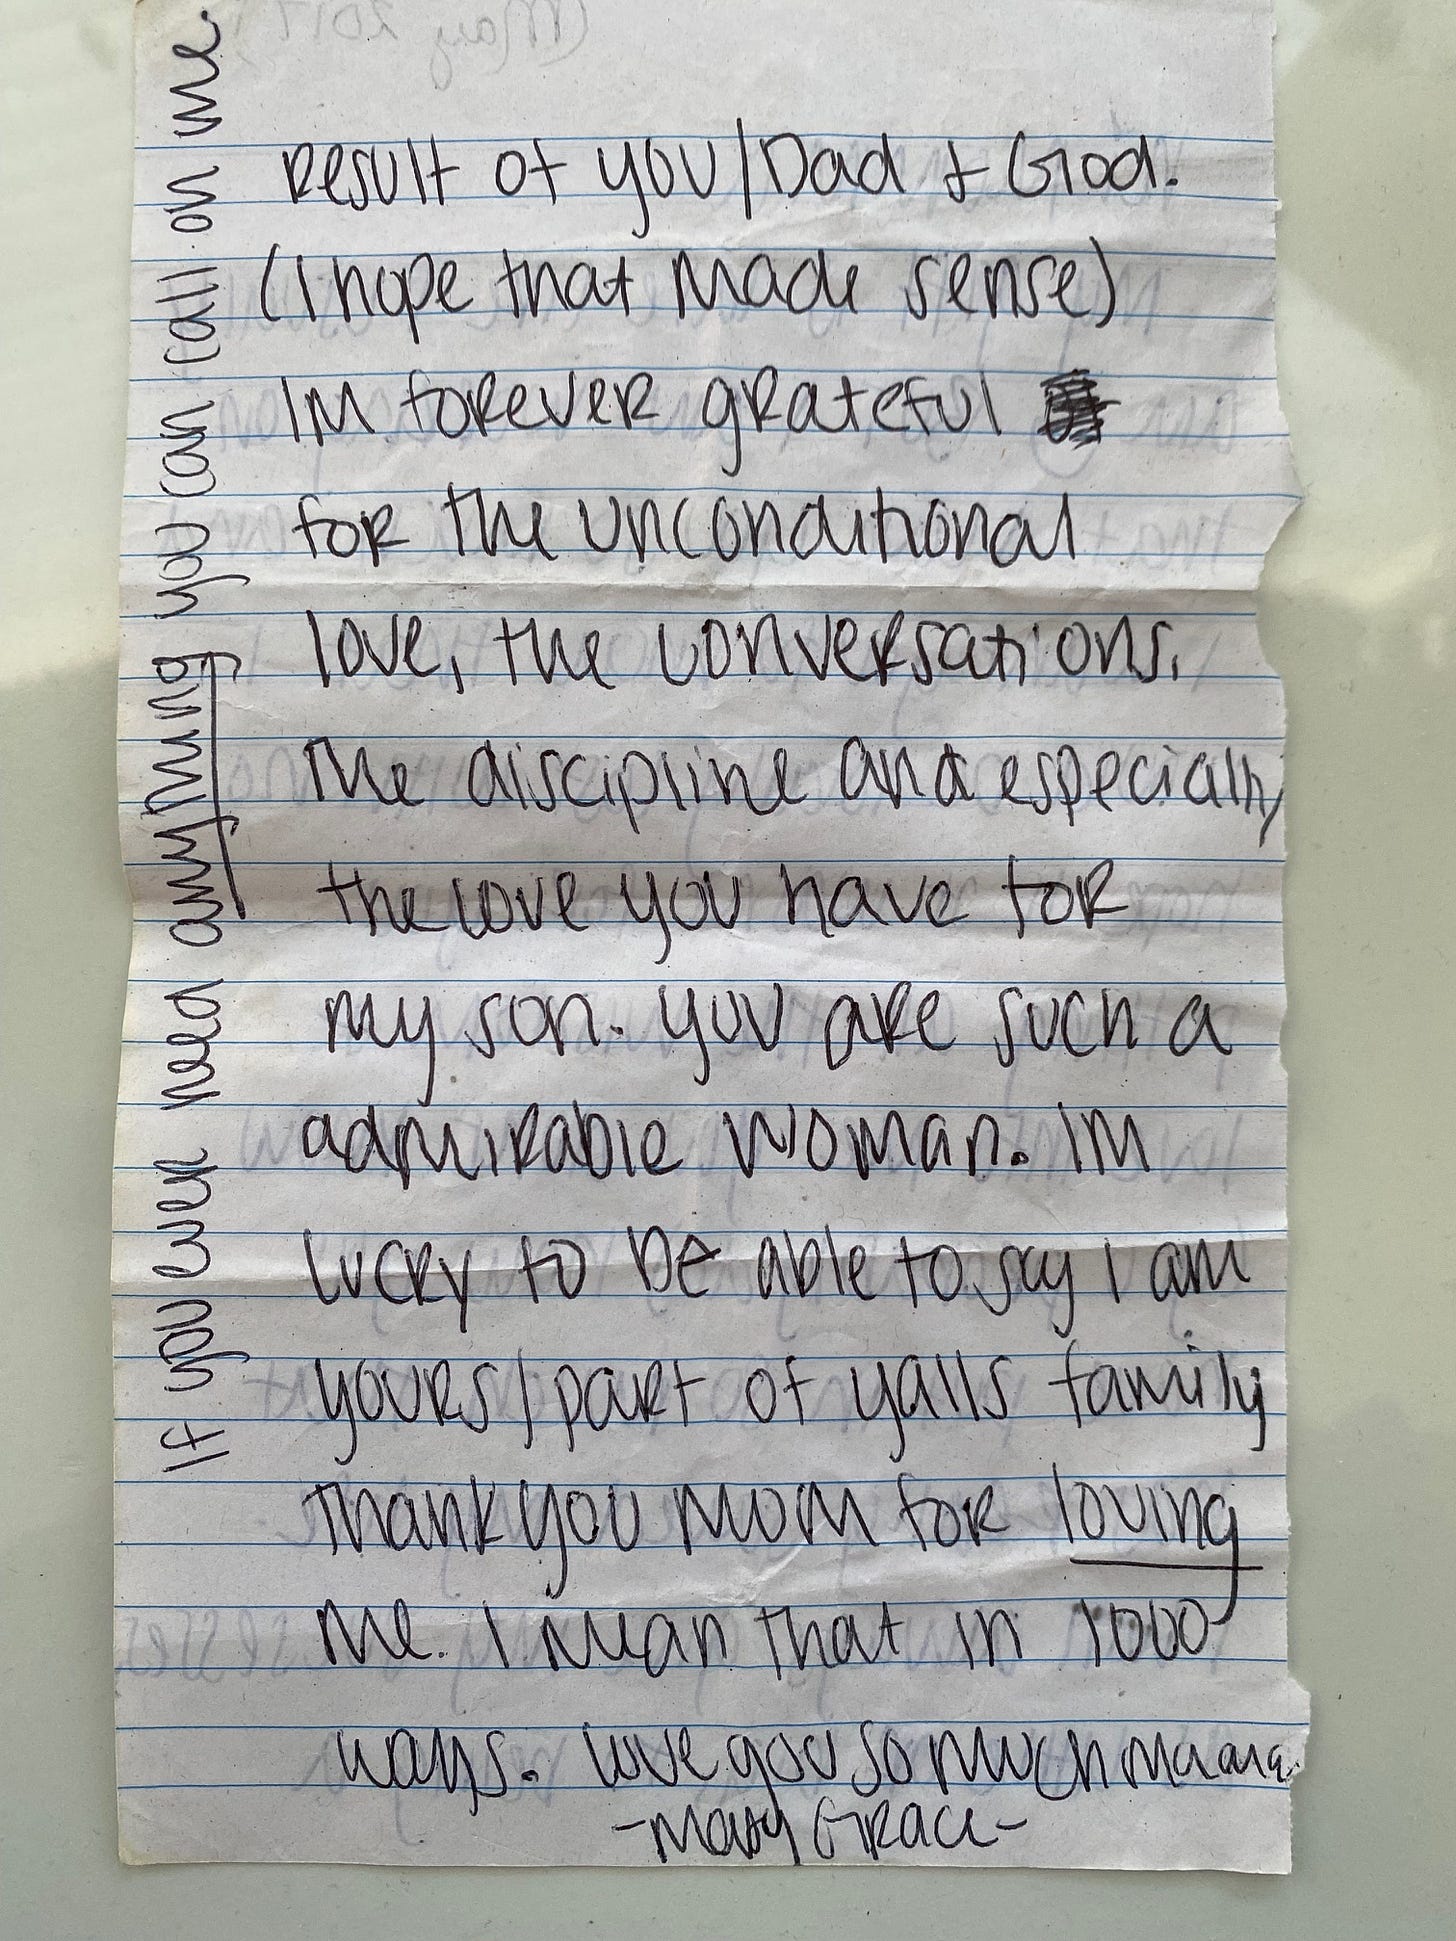 result of you/Dad & God.
(I hope that made sense)
Im forever grateful
for the unconditional
love, the conversations,
the discipline and especially
the love you have for
my son. you are such a
admirable woman. Im
lucky to be able to say I am
yours/part of yalls family
Thank you Mom for loving
me. I mean that in 1000
ways. love you so much
-Mary Grace-
If you ever need anything you can call on me